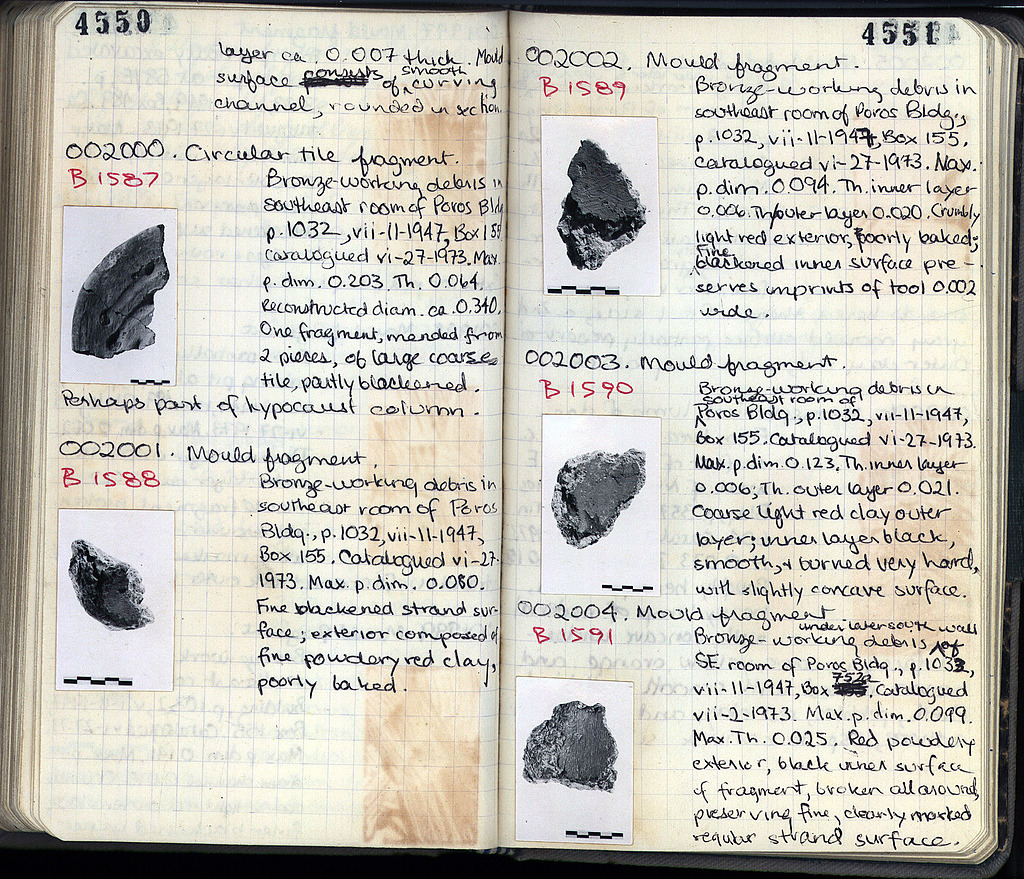 4550
layer ca. 0.007 thick. Mould
surface consists of smooth curving
channel, rounded in section.
002000. Circular tile fragment.
B 1587
Bronze-working debris in
southeast room of Poros Bldg
p.1032, vii-11-1947, Box 155
catalogued vi-27-1973. Max.
p. dim. 0.203. Th. 0.064.
Reconstructed diam. ca. 0.340.
One fragment, mended from
2 pieces, of large coarse
tile, partly blackened.
Perhaps part of hypocaust column.
002001. Mould fragment.
B 1588
Bronze-working debris in
southeast room of Poros
Bldg., p.1032, vii-11-1947,
Box 155. Catalogued vi-27-
1973. Max. p. dim. 0.080.
Fine blackened strand sur-
face; exterior composed of
fine powdery red clay,
poorly baked.
4551
002002. Mould fragment.
B 1589
Bronze-working debris in
southeast room of Poros Bldg.,
p.1032, vii-11-1947, Box 155.
Catalogued vi-27-1973. Max.
p. dim. 0.094. Th. inner layer
0.006. Th. outer layer 0.020. Crumbly
light red exterior, poorly baked;
Fine blackened inner surface pre-
serves imprints of tool 0.002
wide.
002003. Mould fragment.
B 1590
Bronze-working debris in
southeast room of
Poros Bldg., p.1032, vii-11-1947,
Box 155. Catalogued vi-27-1973.
Max. p. dim. 0.123. Th. inner layer
0.006; Th. outer layer 0.021.
Coarse light red clay outer
layer; inner layer black,
smooth, & burned very hard,
with slightly concave surface.
002004. Mould fragment
B 1591
under later south wall
Bronze-working debris of
SE room of Poros Bldg., p.1032,
vii-11-1947, Box 752a. Catalogued
vii-2-1973. Max. p. dim. 0.099.
Max. Th. 0.025. Red powdery
exterior, black inner surface
of fragment, broken all around,
preserving fine, clearly marked
regular strand surface.